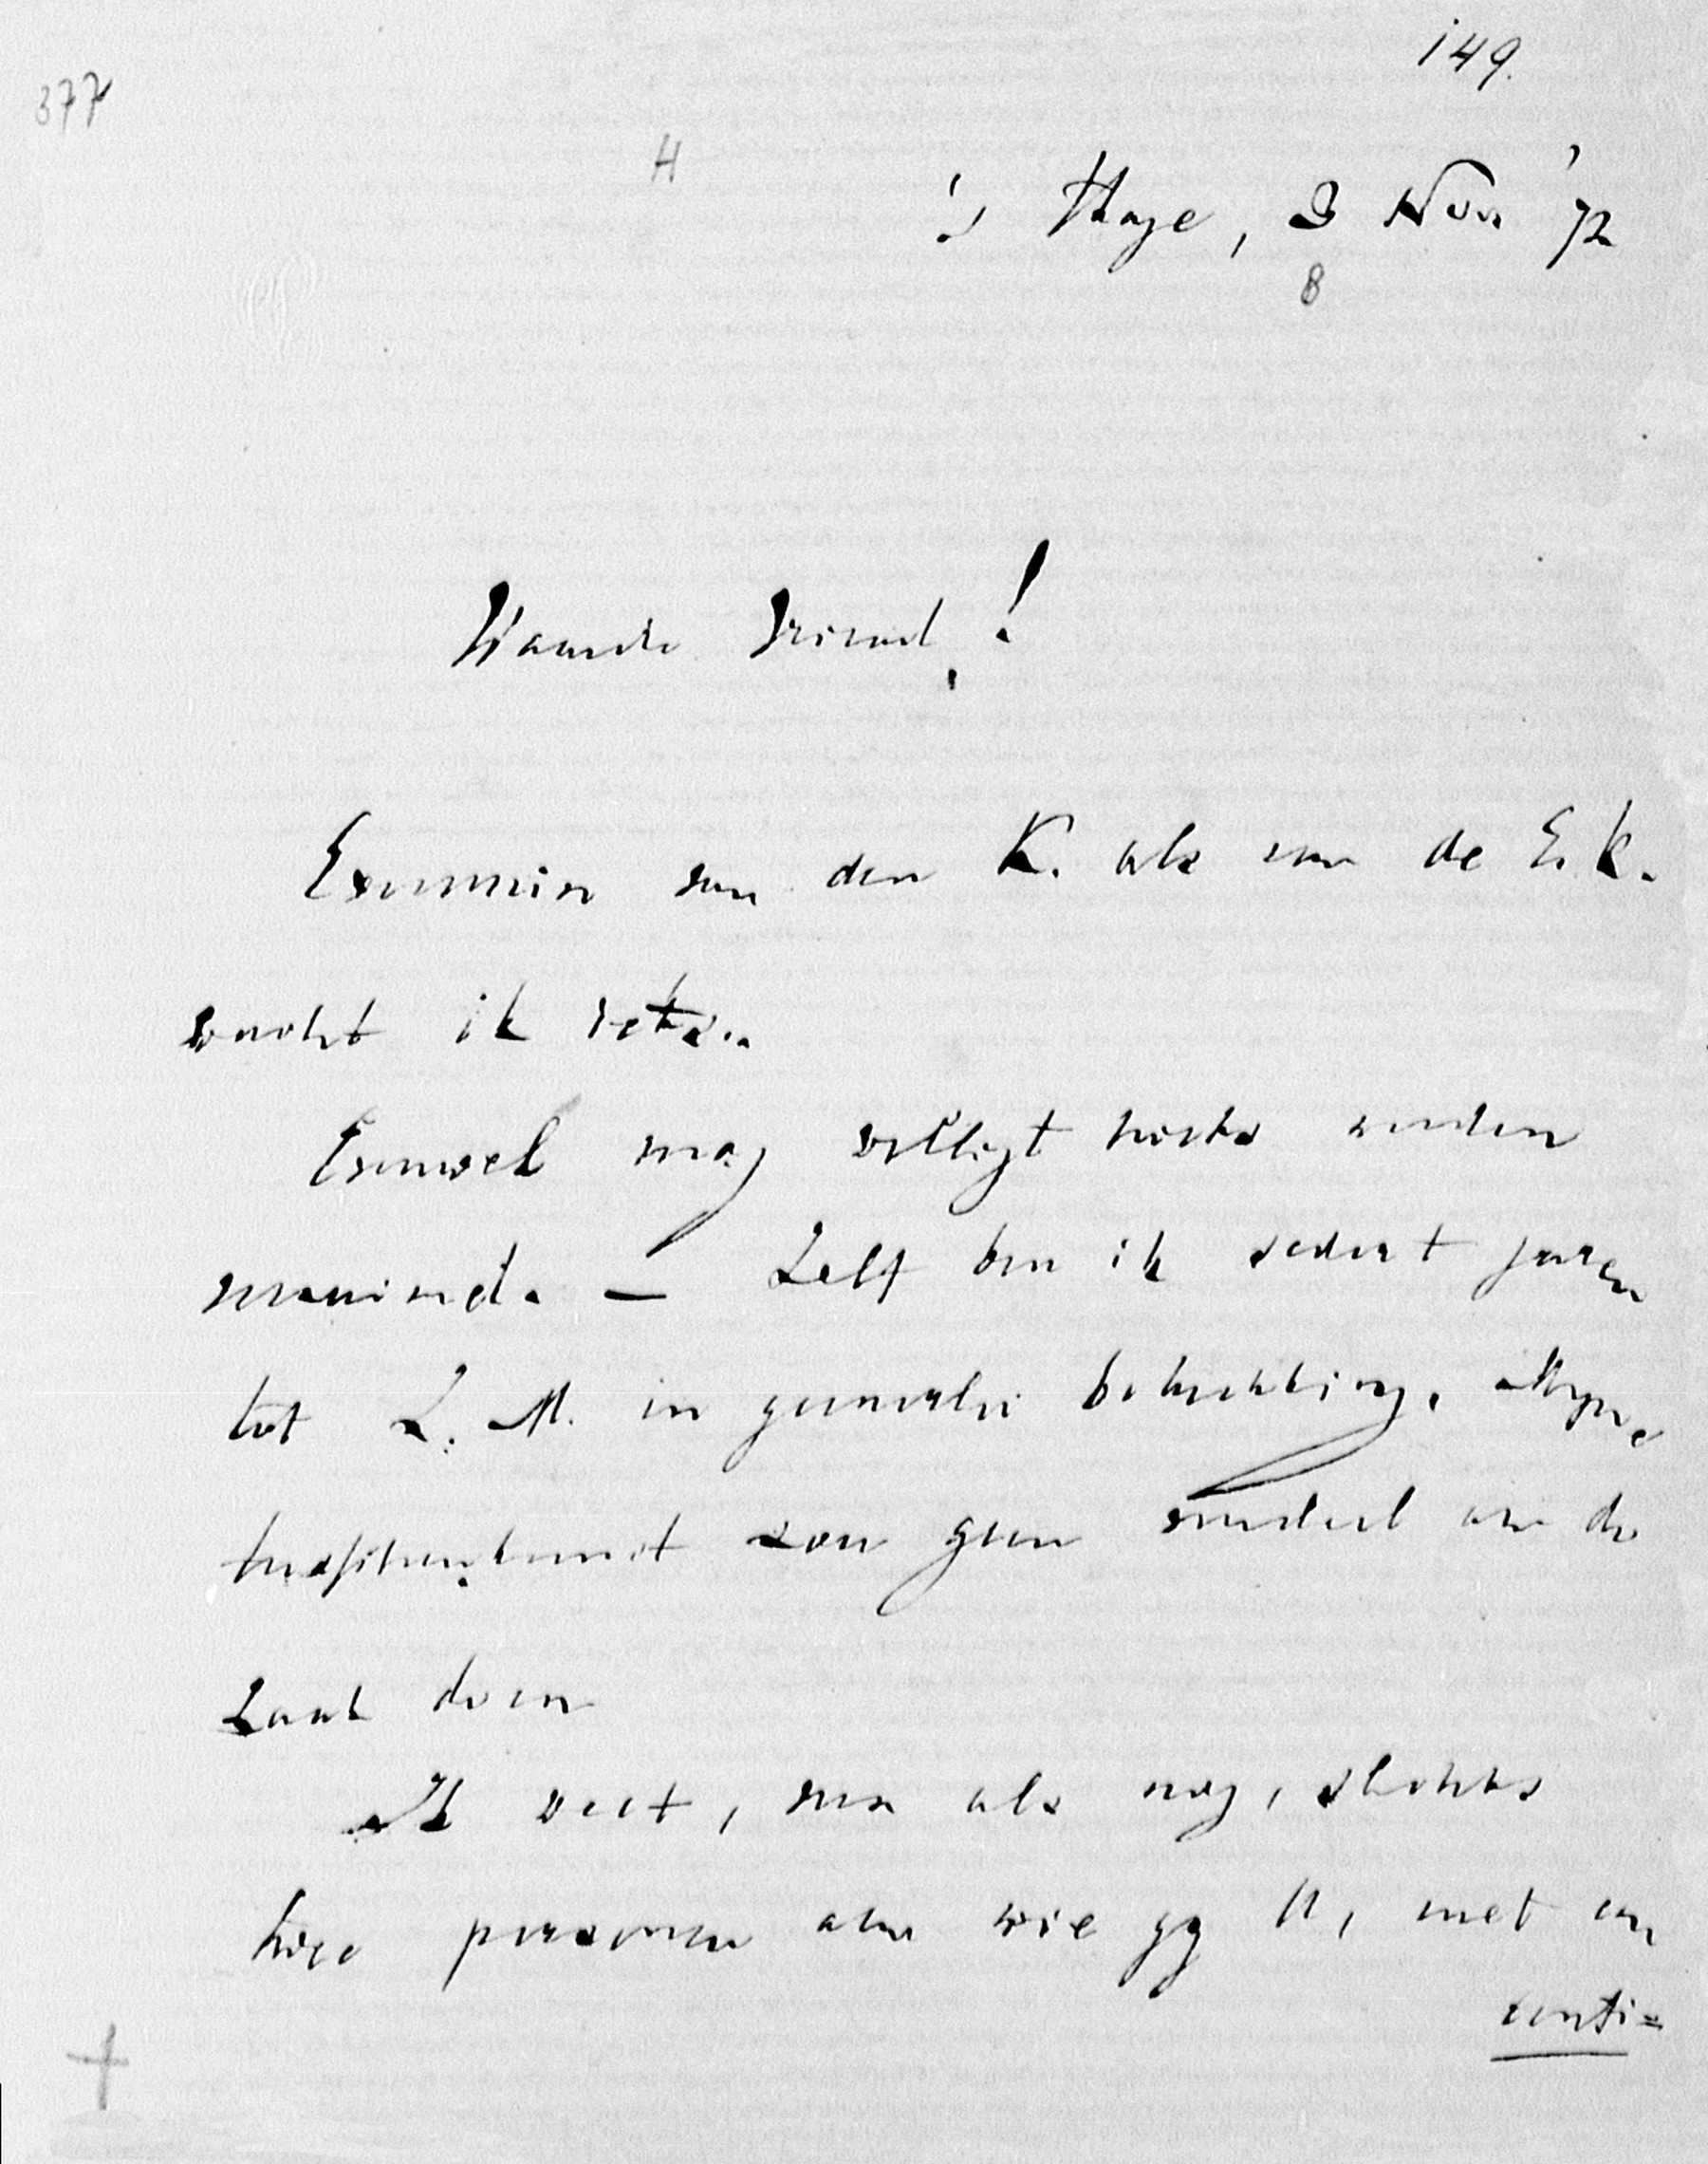 149.
377
H
's Hage, 8 Nov '72
8
Waarde Vriend!
Evenmin van den K. als van de E. K.
wacht ik iets..
Evenwel mag welligt niets worden
verzuimd. — Zelf ben ik sedert jaren
tot Z. M. in geenerlei betrekking. Mijne
tusschenkomst zou geen voordeel aan de
Zaak doen
Ik weet, van als nog, slechts
twee personen aan wie gij U, met een
conti=